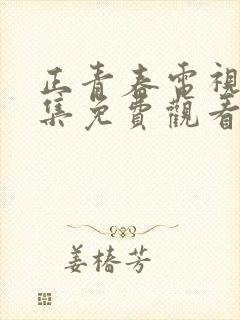 正青春電視
集免費觀看
姜椿芳